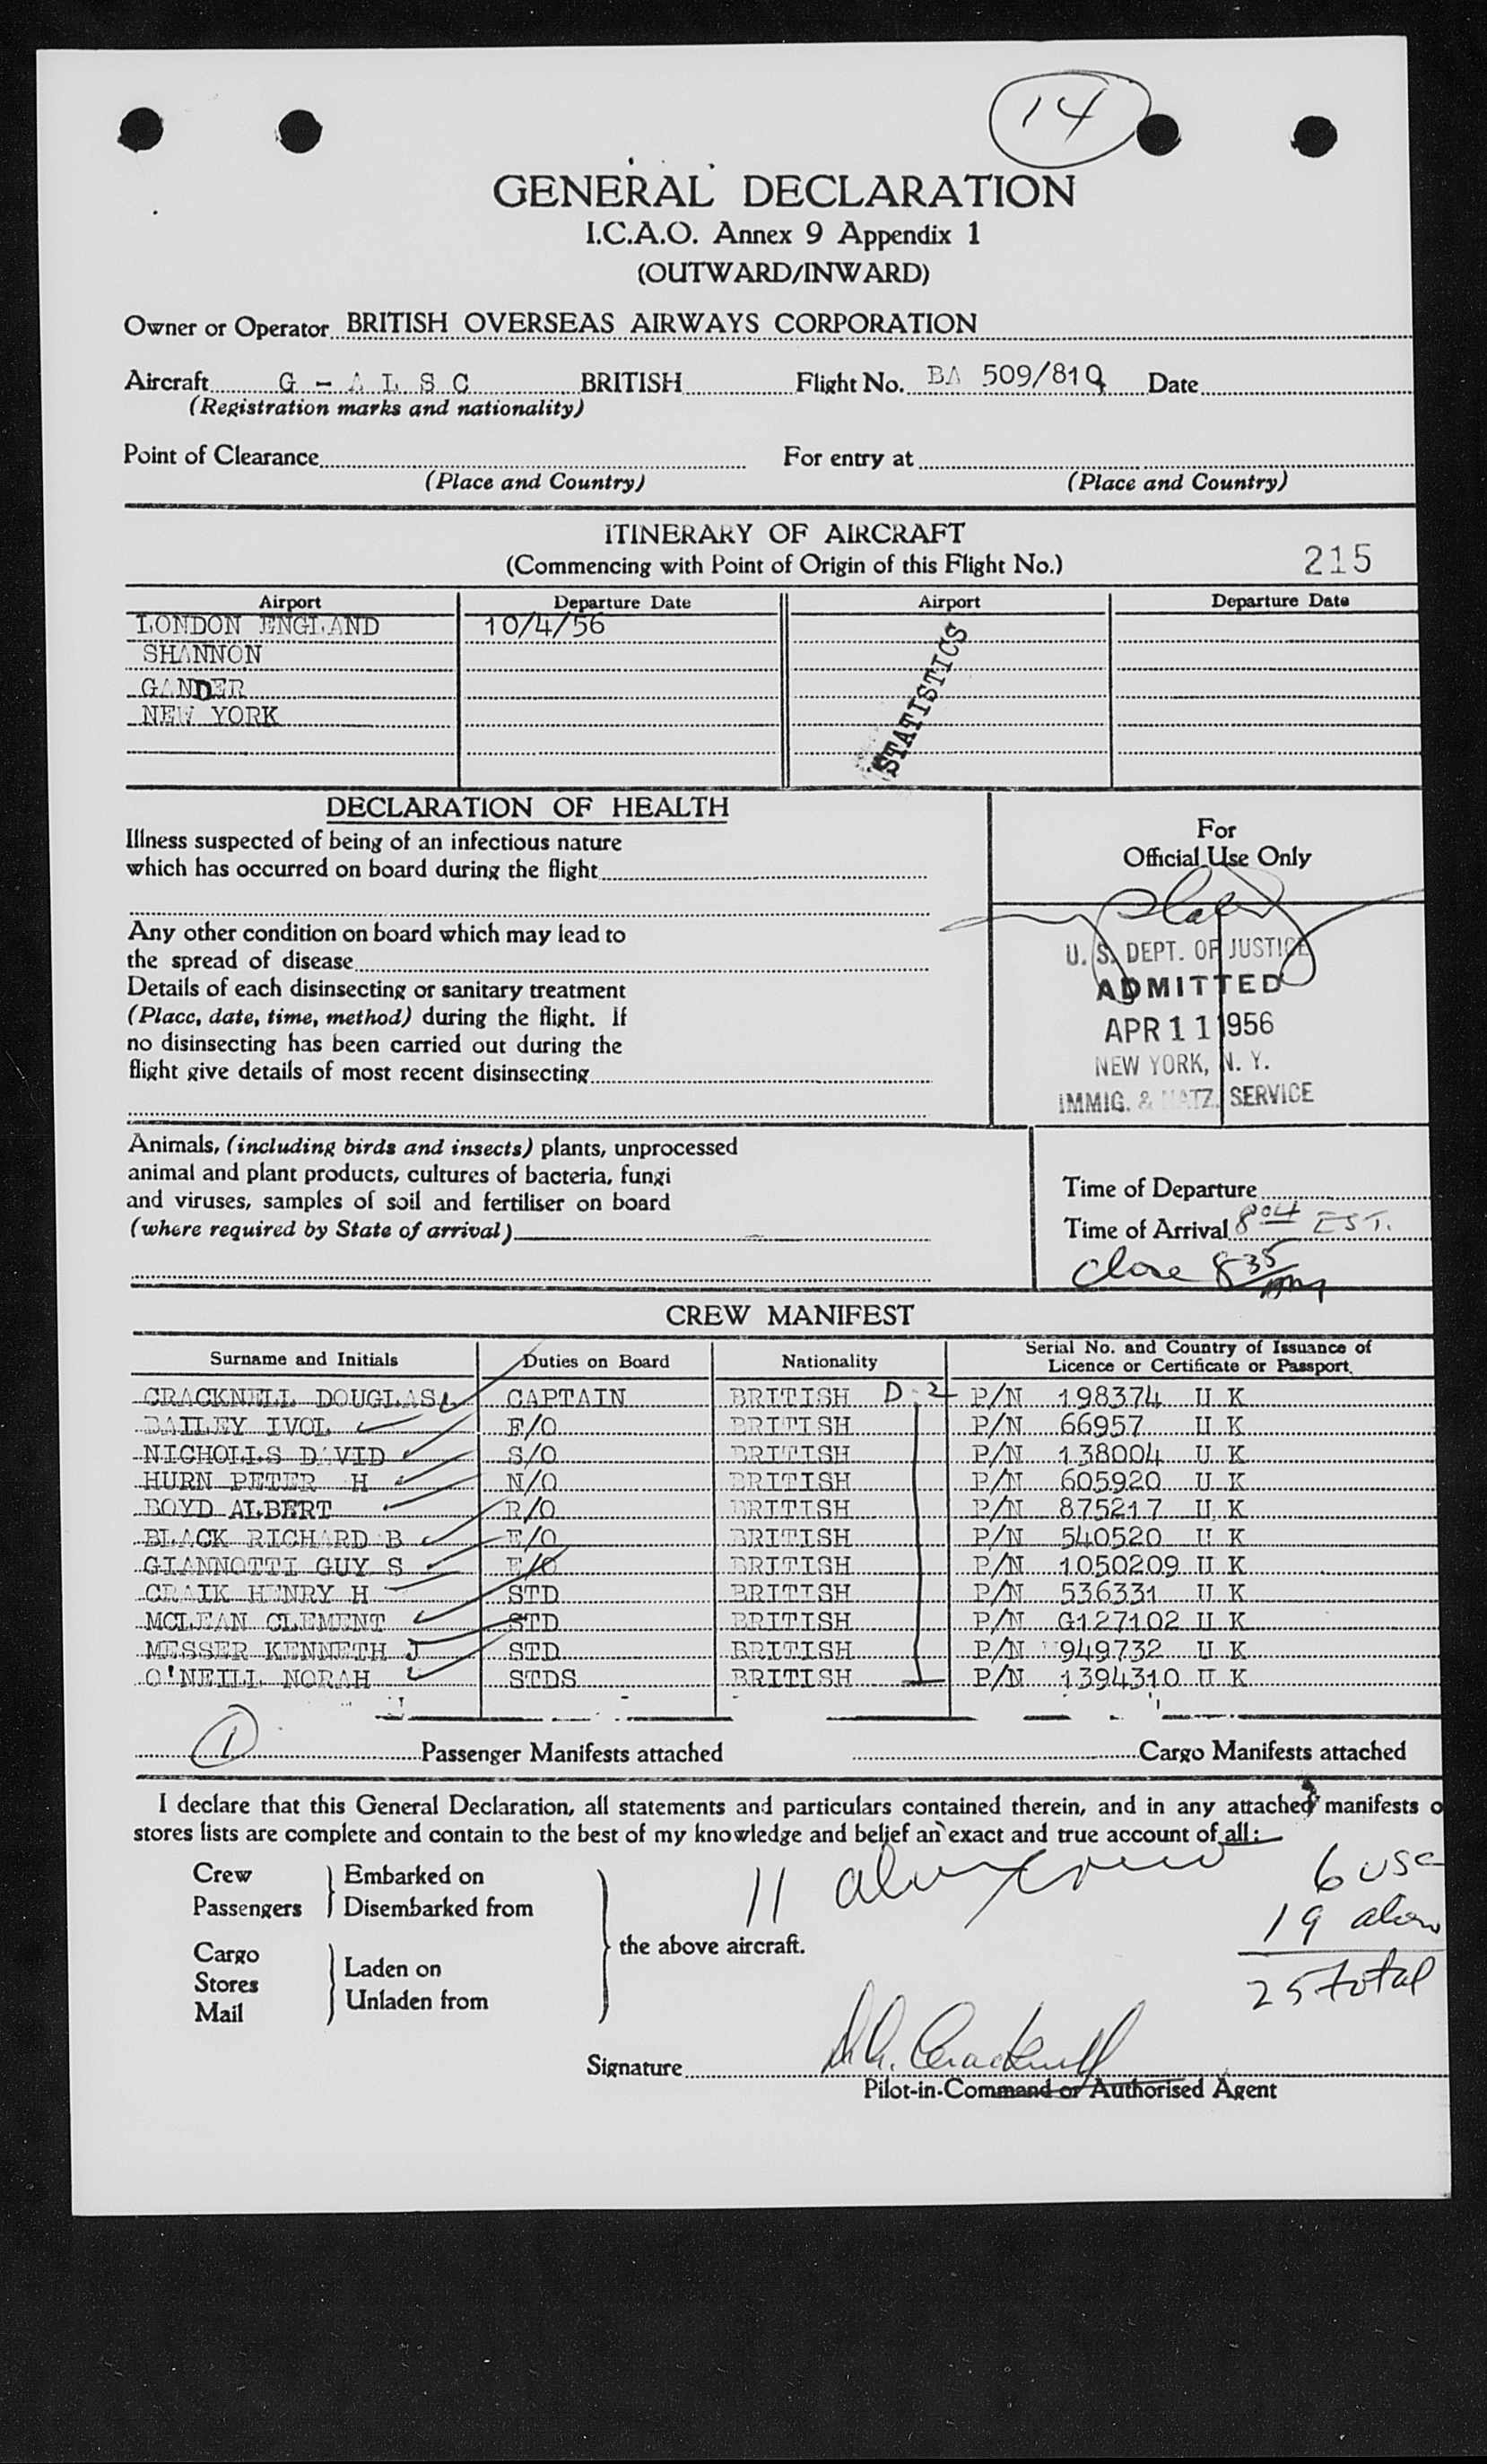 14
GENERAL DECLARATION
I.C.A.O. Annex 9 Appendix 1
(OUTWARD/INWARD)
Owner or Operator BRITISH OVERSEAS AIRWAYS CORPORATION
Aircraft G - A L S C BRITISH Flight No. BA 509/810 Date
(Registration marks and nationality)
Point of Clearance For entry at
(Place and Country) (Place and Country)
ITINERARY OF AIRCRAFT
(Commencing with Point of Origin of this Flight No.) 215
Airport Departure Date Airport Departure Date
LONDON ENGLAND 10/4/56
SHANNON
GANDER
NEW YORK
STATISTICS
DECLARATION OF HEALTH
Illness suspected of being of an infectious nature
which has occurred on board during the flight
Any other condition on board which may lead to
the spread of disease
Details of each disinsecting or sanitary treatment
(Place, date, time, method) during the flight. If
no disinsecting has been carried out during the
flight give details of most recent disinsecting
For
Official Use Only
U. S. DEPT. OF JUSTICE
ADMITTED
APR 11 1956
NEW YORK, N. Y.
IMMIG. & NATZ. SERVICE
Animals, (including birds and insects) plants, unprocessed
animal and plant products, cultures of bacteria, fungi
and viruses, samples of soil and fertiliser on board
(where required by State of arrival)
Time of Departure
Time of Arrival 8 04 EST.
Close 8 35
CREW MANIFEST
Surname and Initials Duties on Board Nationality Serial No. and Country of Issuance of Licence or Certificate or Passport
CRACKNELL DOUGLAS CAPTAIN BRITISH D-2 P/N 198374 U K
BAILEY IVOL F/O BRITISH P/N 66957 U K
NICHOLLS DAVID S/O BRITISH P/N 138004 U K
HURN PETER H N/O BRITISH P/N 605920 U K
BOYD ALBERT R/O BRITISH P/N 875217 U K
BLACK RICHARD B E/O BRITISH P/N 540520 U K
GIANNOTTI GUY S E/O BRITISH P/N 1050209 U K
CRAIK HENRY H STD BRITISH P/N 536331 U K
MCLEAN CLEMENT STD BRITISH P/N G127102 U K
MESSER KENNETH J STD BRITISH P/N 949732 U K
O'NEILL NORAH STDS BRITISH P/N 1394310 U K
1 Passenger Manifests attached Cargo Manifests attached
I declare that this General Declaration, all statements and particulars contained therein, and in any attached manifests o
stores lists are complete and contain to the best of my knowledge and belief an exact and true account of all:
Crew Embarked on
Passengers Disembarked from
Cargo
Stores Laden on
Mail Unladen from
the above aircraft.
11 alien crew
6 USC
19 alien
25 total
Signature D.A. Cracknell
Pilot-in-Command or Authorised Agent